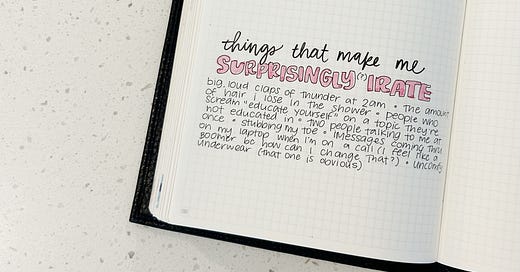 things that make me
SURPRISINGLY (?) IRATE
big, loud claps of thunder at 2am • The amount
of hair i lose in the shower • people who
scream "educate yourself" on a topic They're
not educated in • Two people talking to me at
once • stubbing my toe • iMessages coming thru
on my laptop when I'm on a call (I feel like a
Boomer bc how can i change That?) •
underwear (that one is obvious)